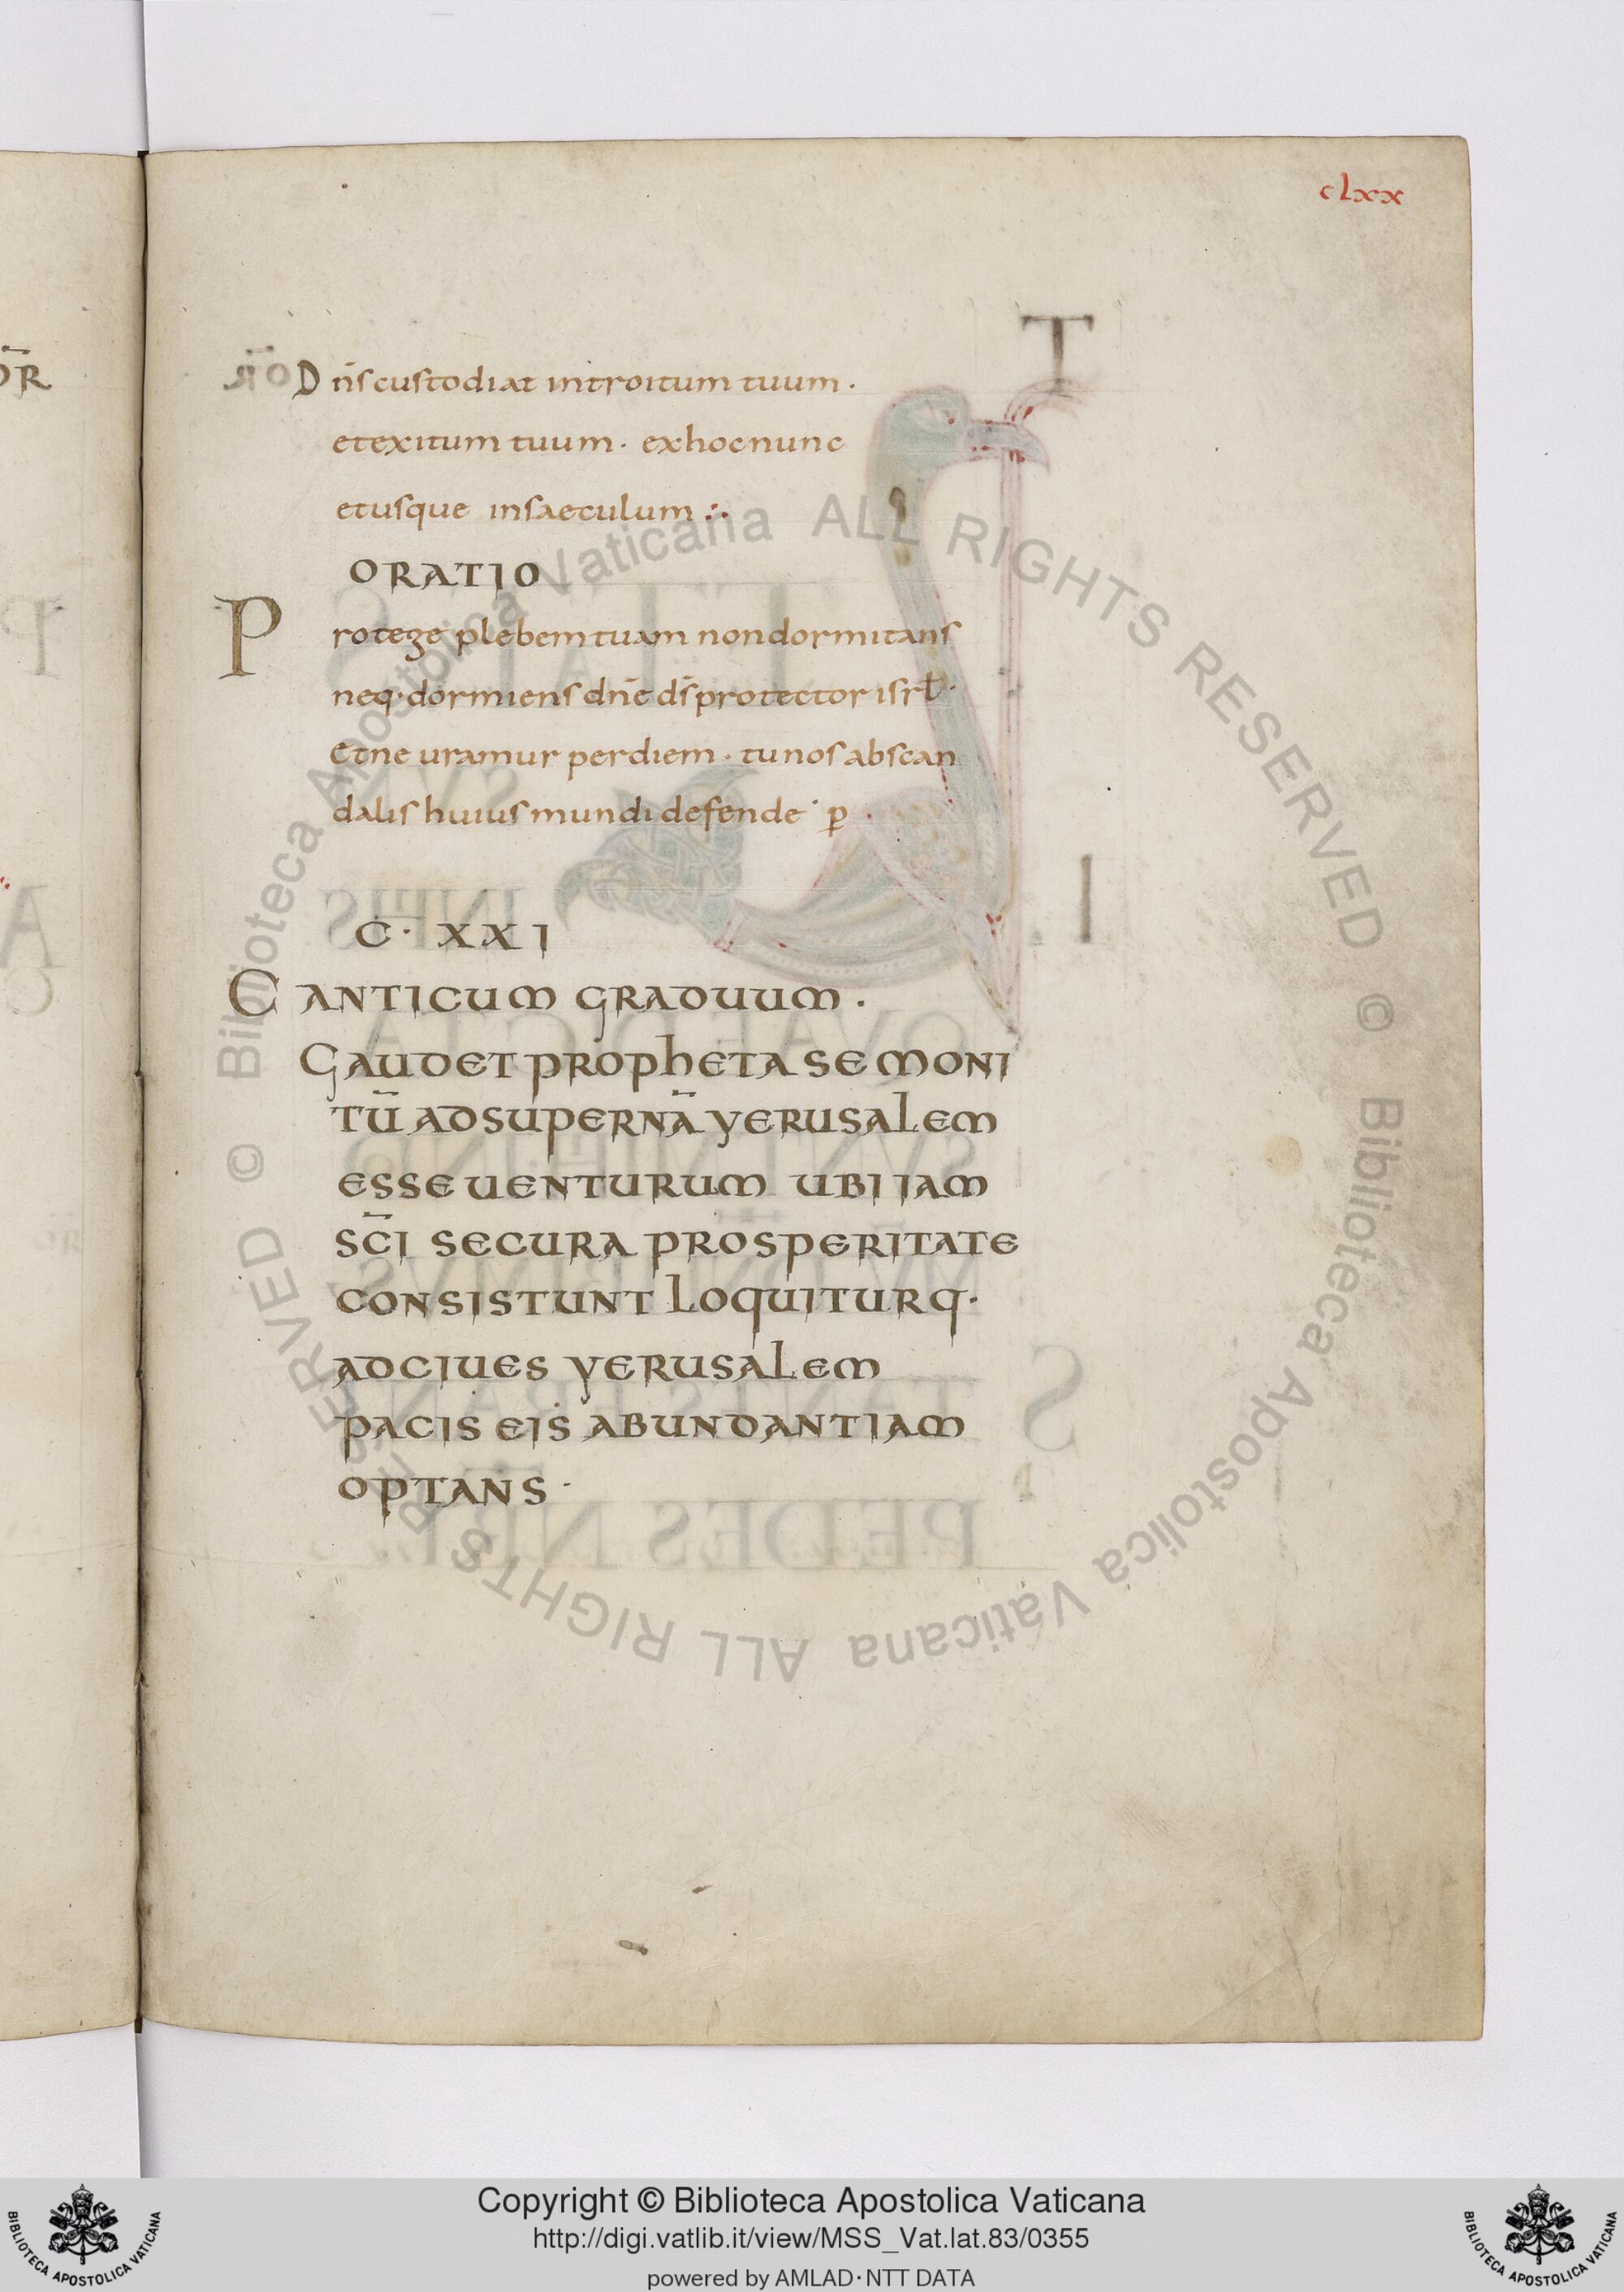 clxx
D n̄s custodiat introitum tuum ·
et exitum tuum · ex hoc nunc
et usque in saeculum ჻
ORATIO
P rotege plebem tuam non dormitans
neq· dormiens dn̄e ds̄ protector isrl̄ ·
Et ne uramur per diem · tu nos ab scan
dalis huius mundi defende · p̄ ·
C · XXI
C ANTICUM GRADUUM ·
GAUDET PROPHETA SE MONI
TŪ AD SUPERNĀ YERUSALEM
ESSE UENTURUM UBI IAM
SC̄I SECURA PROSPERITATE
CONSISTUNT LOQUITURQ·
AD CIUES YERUSALEM
PACIS EIS ABUNDANTIAM
OPTANS ·
© Biblioteca Apostolica Vaticana ALL RIGHTS RESERVED © Biblioteca Apostolica Vaticana ALL RIGHTS RESERVED
BIBLIOTECA APOSTOLICA VATICANA
Copyright © Biblioteca Apostolica Vaticana
http://digi.vatlib.it/view/MSS_Vat.lat.83/0355
powered by AMLAD·NTT DATA
BIBLIOTECA APOSTOLICA VATICANA